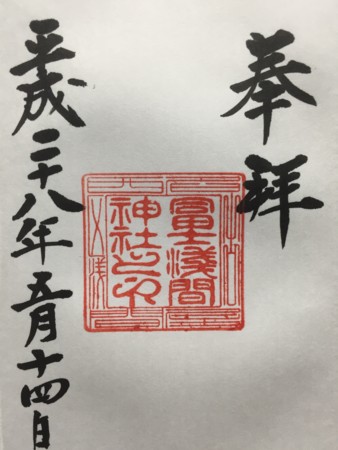 奉拝
冨士浅間
神社之印
平成二十八年五月十四日